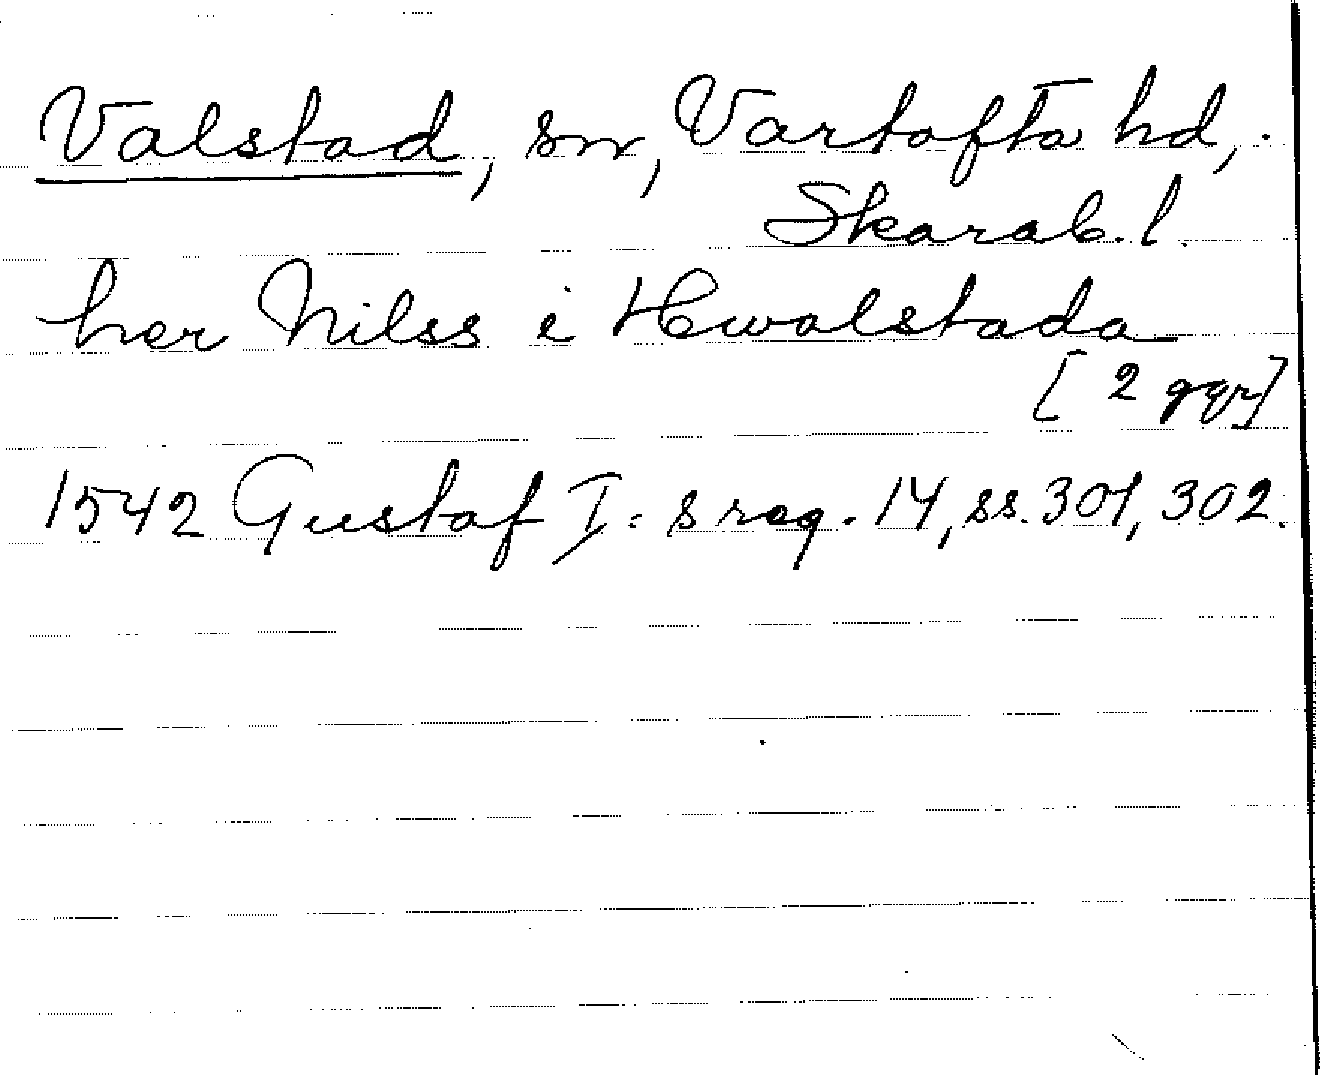 Valstad, sn, Vartofta hd,
Skarab. l.
her Nilss i Hwalstada
[2 ggr]
1542 Gustaf I:s reg. 14, ss. 301, 302.